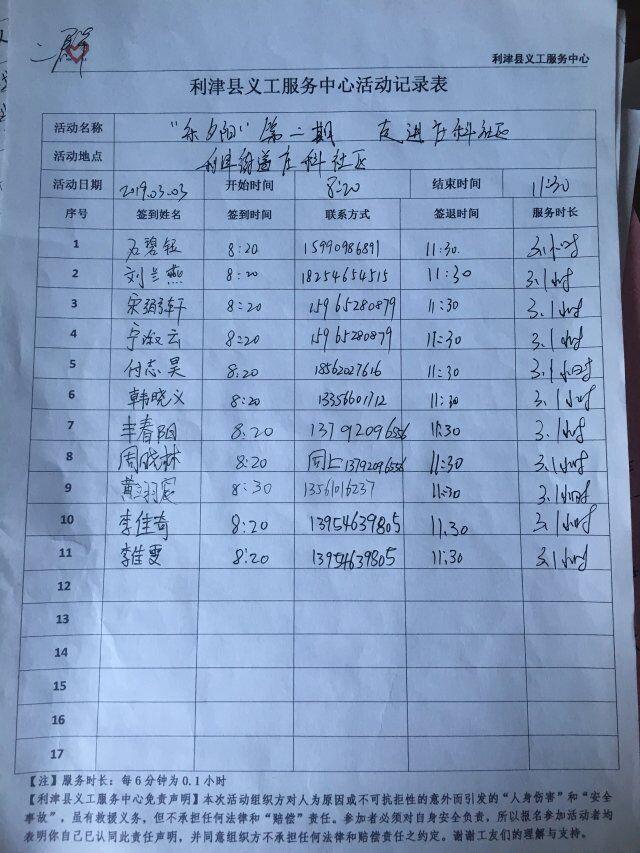 二群
利津县义工服务中心
利津县义工服务中心活动记录表
活动名称 "乐夕阳"第二期 走进庄科社区
活动地点 利津街道庄科社区
活动日期 2019.03.03 开始时间 8:20 结束时间 11:30
序号 签到姓名 签到时间 联系方式 签退时间 服务时长
1 石碧钰 8:20 15990986891 11:30 3.1小时
2 刘兰燕 8:20 18254654515 11:30 3.1小时
3 宋翊轩 8:20 15965280879 11:30 3.1小时
4 宁淑云 8:20 15965280879 11:30 3.1小时
5 付志昊 8:20 18562027616 11:30 3.1小时
6 韩晓义 8:20 13356601712 11:30 3.1小时
7 丰春阳 8:20 13792096556 11:30 3.1小时
8 周晓林 8:20 同上13792096556 11:30 3.1小时
9 黄羽宸 8:30 13561016237 11:30 3.1小时
10 李佳奇 8:20 13954639805 11:30 3.1小时
11 李佳雯 8:20 13954639805 11:30 3.1小时
12
13
14
15
16
17
【注】服务时长：每6分钟为0.1小时
【利津县义工服务中心免责声明】本次活动组织方对人为原因或不可抗拒性的意外而引发的"人身伤害"和"安全
事故"，虽有救援义务，但不承担任何法律和"赔偿"责任。参加者必须对自身安全负责，所以报名参加活动者均
表明你自己已认同此责任声明，并同意组织方不承担任何法律和赔偿责任之约定。谢谢工友们的理解与支持。